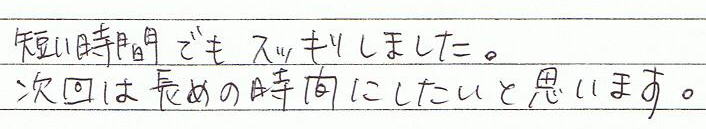 短い時間でもスッキリしました。
次回は長めの時間にしたいと思います。